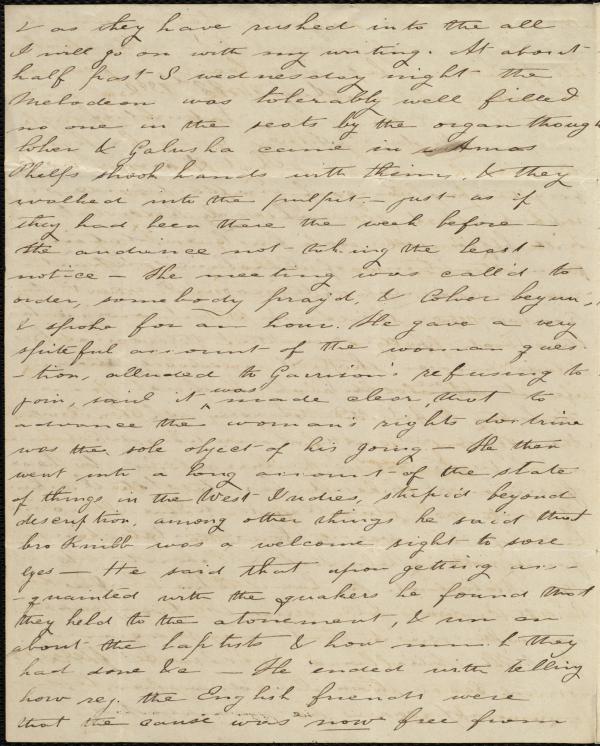 & as they have rushed into the all
I will go on with my writing. At about
half past 5 wednesday night the
Melodeon was tolerably well filled
no one in the seats by the organ though
Colver & Galusha came in Amos
Phelps shook hands with them, & they
walked into the pulpit - just as if
they had been there the week before -
the audience not taking the least
notice - The meeting was call'd to
order, somebody pray'd, & Colver begun,
& spoke for an hour. He gave a very
spiteful account of the woman ques-
-tion, alluded to Garrison's refusing to
join, said it was made clear, that to
advance the woman's rights doctrine
was the sole object of his going - He then
went into a long account of the state
of things in the West Indies, stupid beyond
description, among other things he said that
bro Knibb was a welcome sight to sore
eyes - He said that upon getting ac-
-quainted with the quakers he found that
they held to the atonement, & run on
about the baptists & how much they
had done &c - He ended with telling
how rej. the English friends were
that the cause was now free from